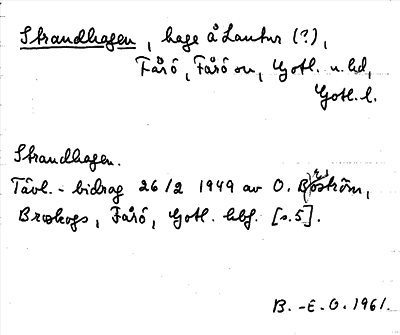 Strandhagen, hage å Lautur (?),
Fårö, Fårö sn, Gotl. n. hd,
Gotl. l.
Strandhagen.
Tävl.-bidrag 26/2 1949 av O. Boström,
Broskogs, Fårö, Gotl. hbf. [s.5].
B.-E.O. 1961.